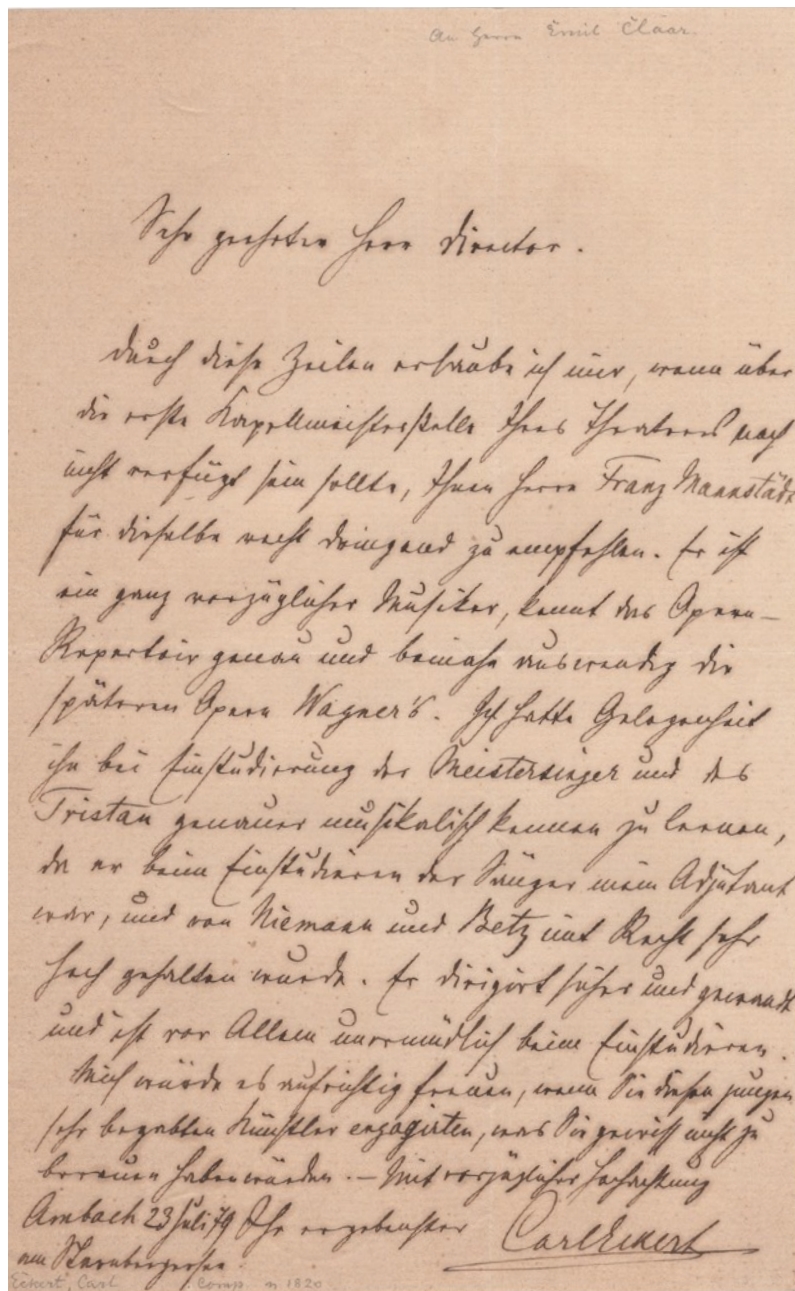 An Herrn Emil Claar.
Sehr geehrter Herr Director.
Durch diese Zeilen erlaube ich mir, wenn über
die erste Kapellmeisterstelle Ihres Theaters noch
nicht verfügt sein sollte, Ihnen Herrn Franz Mannstädt
für dieselbe recht dringend zu empfehlen. Er ist
ein ganz vorzüglicher Musiker, kennt das Opern-
Repertoir genau und beinahe auswendig die
späteren Opern Wagner's. Ich hatte Gelegenheit
ihn bei Einstudierung der Meistersinger und des
Tristan genauer musikalisch kennen zu lernen,
da er beim Einstudieren der Sänger mein Adjutant
war, und von Niemann und Betz mit Recht sehr
hoch gehalten wurde. Er dirigirt sicher und gewandt
und ist vor Allem unermüdlich beim Einstudieren.
Mich würde es aufrichtig freuen, wenn Sie diesen jungen
sehr begabten Künstler engagirten, was Sie gewiss nicht zu
bereuen haben würden. — Mit vorzüglicher Hochachtung
Ambach 23 Juli 79 Ihr ergebenster Carl Eckert
am Starnbergersee.
Eckert, Carl Comp. n 1820